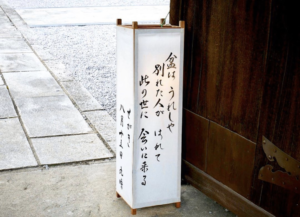 盆は うれしや
別れた人が はれて
此の世に 会いに来る
せがき